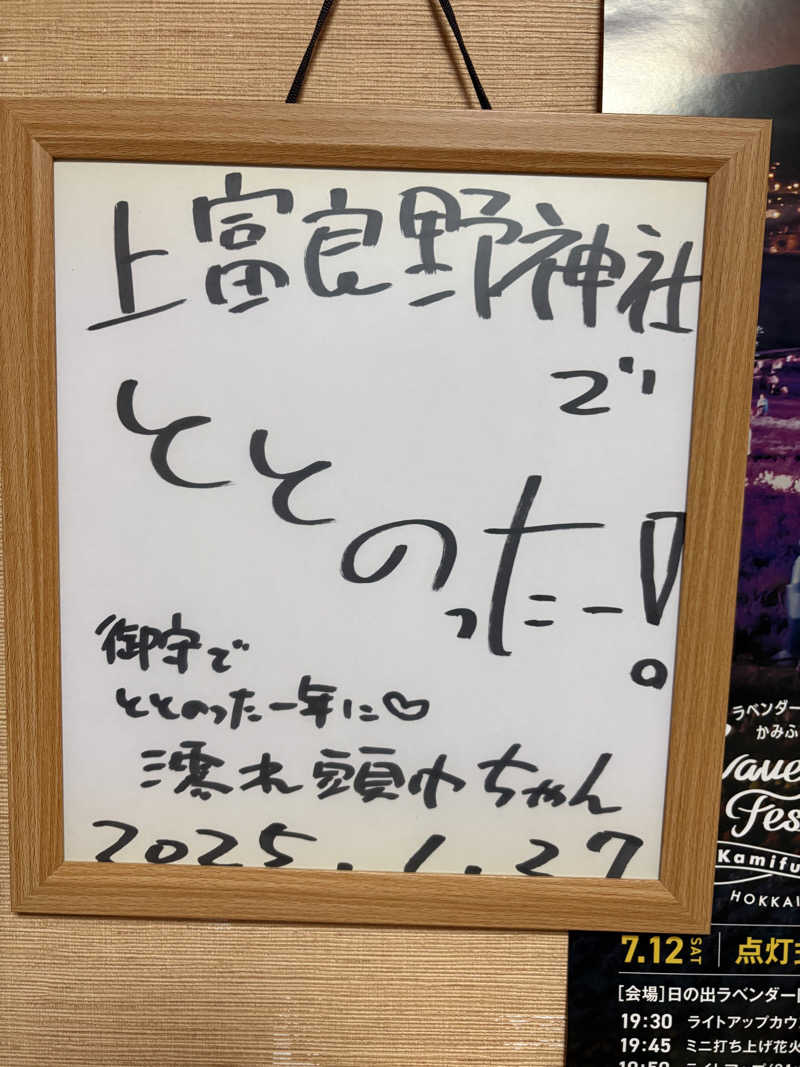 上富良野神社
で
ととのったー!
御守で
ととのった一年に♡
濡れ頭巾ちゃん
2025.1.27
ラベンダー
かみふ
Lave
Fes
Kamifu
HOKKAI
7.12 SAT 点灯
[会場]日の出ラベンダー
19:30 ライトアップカウ
19:45 ミニ打ち上げ花火